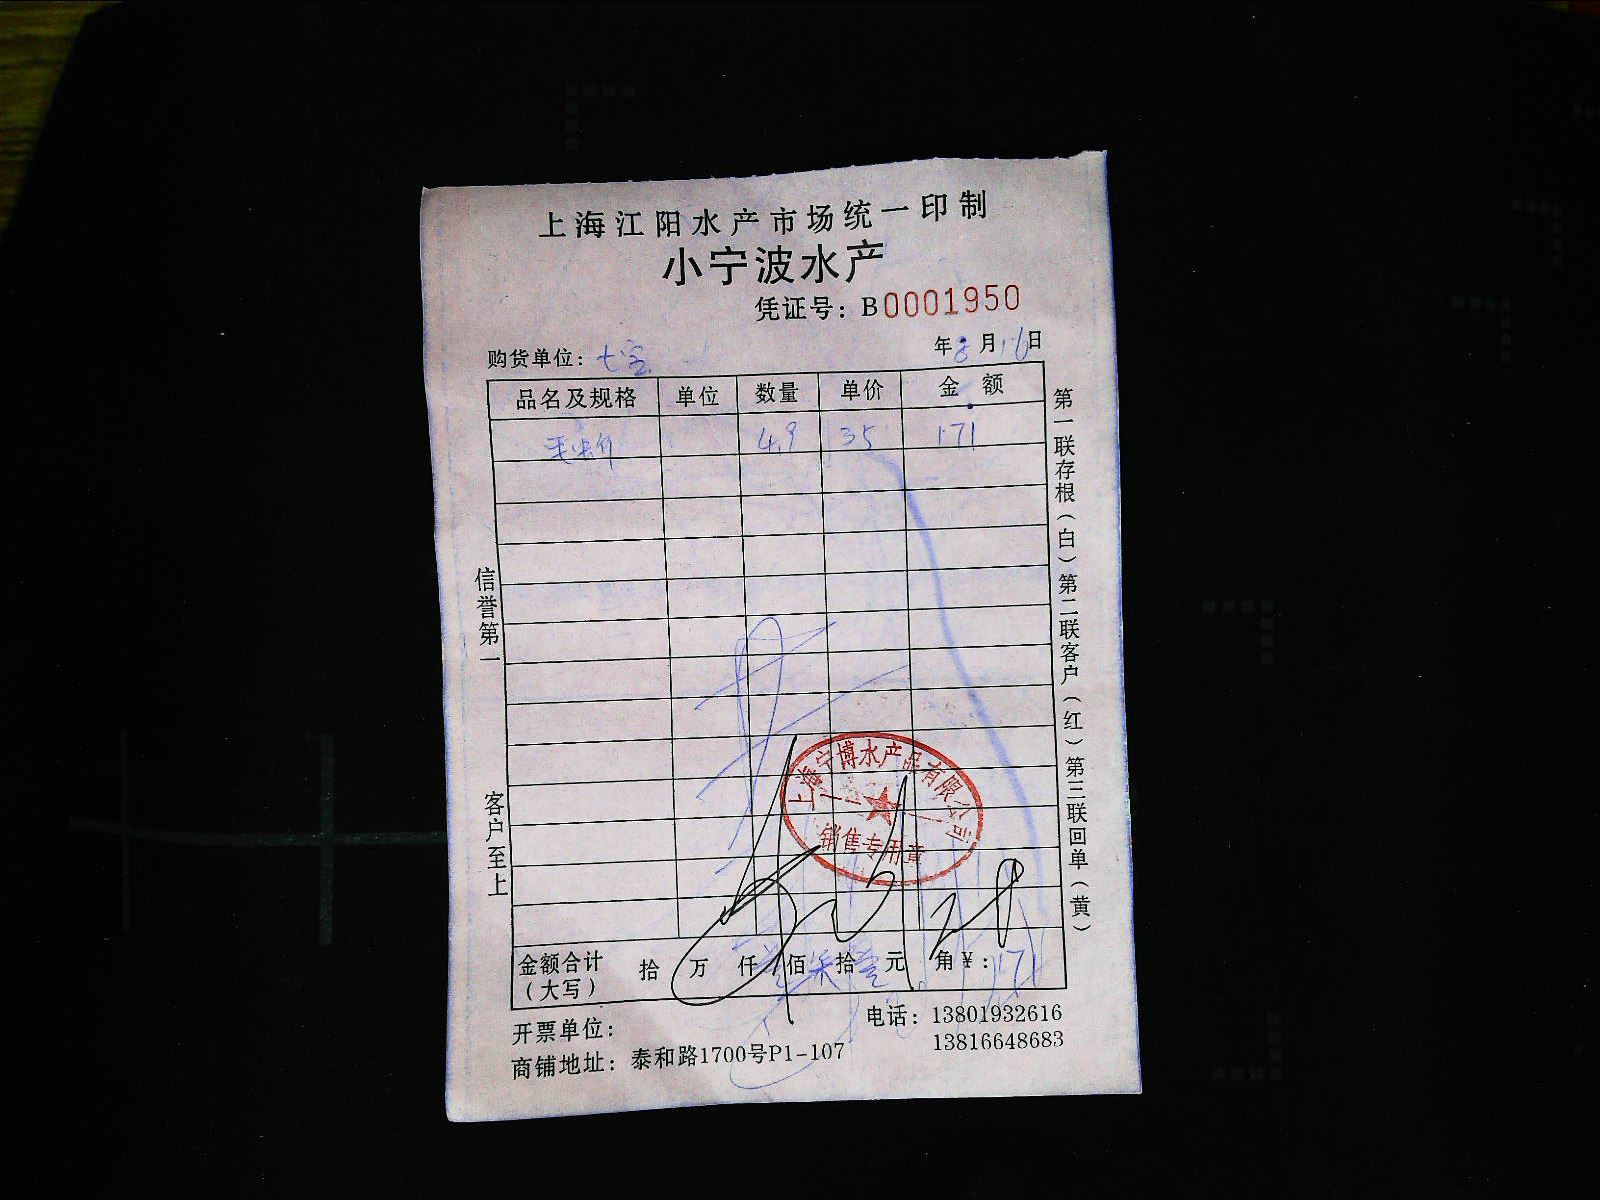 上海江阳水产市场统一印制
小宁波水产
凭证号：B0001950
购货单位：七宝
年8月16日
品名及规格 单位 数量 单价 金额
4.9 35 171
信誉第一
客户至上
第一联存根（白）第二联客户（红）第三联回单（黄）
上海宁博水产品有限公司
销售专用章
金额合计（大写） 拾 万 仟 壹佰柒拾壹元 角 ¥：171
开票单位：
电话：13801932616
13816648683
商铺地址：泰和路1700号P1-107